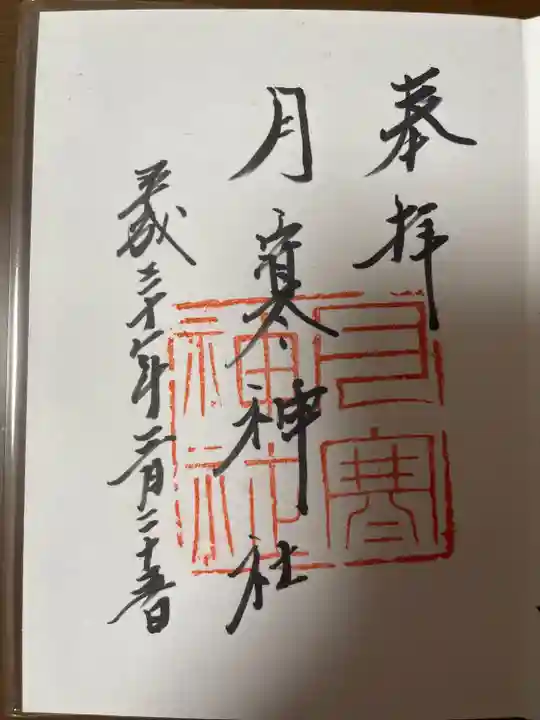 奉拝
月寒神社
平成三十年二月二十五日
月寒神社